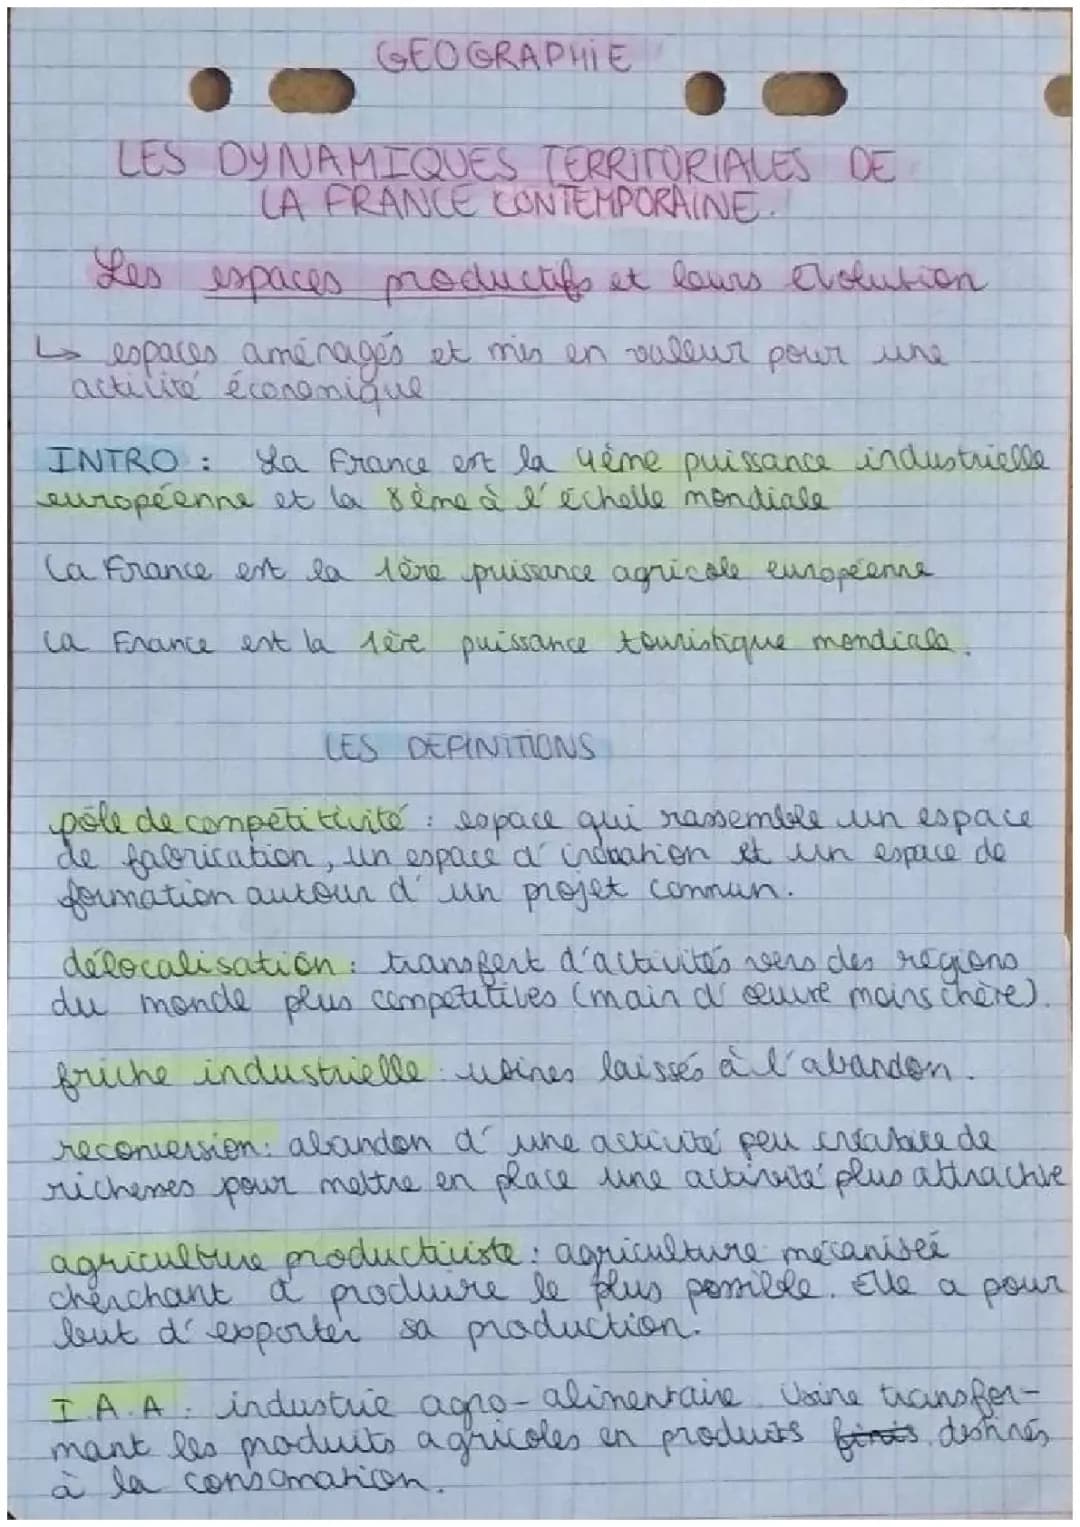 GEOGRAPHIE
LES DYNAMIQUES TERRITORIALES DE
LA FRANCE CONTEMPORAINE.
Les espaces productifs et leurs évolution
↳ espaces aménagés et mis en valeur pour une
activité économique
INTRO : La France est la 4ème puissance industrielle
européenne et la 8ème à l'échelle mondiale
La France est la 1ère puissance agricole européenne
La France est la 1ère puissance touristique mondiale.
LES DEFINITIONS
pôle de compétitivité : espace qui rassemble un espace
de fabrication, un espace d'inovation et un espace de
formation autour d'un projet commun.
délocalisation : transfert d'activités vers des régions
du monde plus compétitives (main d'œuvre moins chère).
friche industrielle : usines laissés à l'abandon.
reconversion : abandon d'une activité peu créatrice de
richesses pour mettre en place une activité plus attractive
agriculture productiviste : agriculture mécanisée
cherchant à produire le plus possible. Elle a pour
but d'exporter sa production.
I.A.A : industrie agro-alimentaire. Usine transfor-
mant les produits agricoles en produits finis destinés
à la consomation.